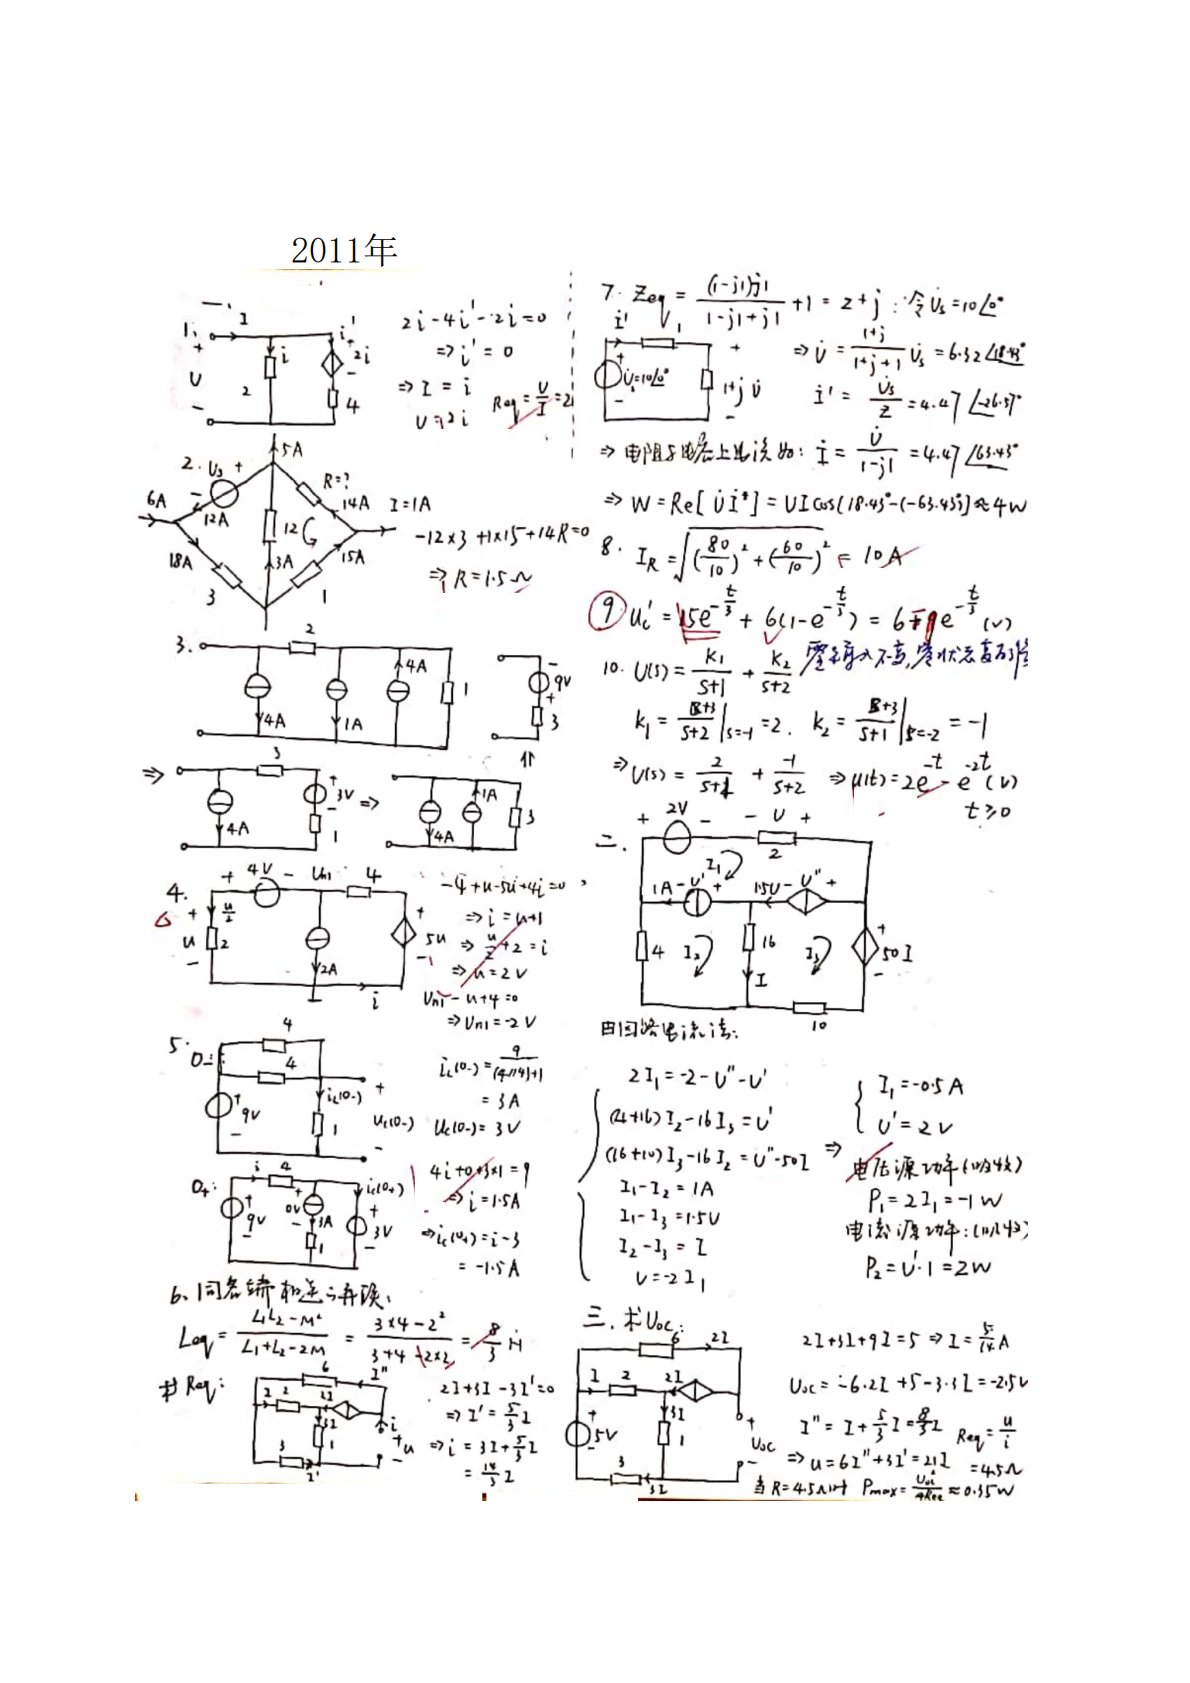 2011年
一.
1.
I
i
i'
+
U
-
2
+
2i
-
4
2i-4i'-2i=0
⇒i'=0
⇒I=i
U=2i
Req=U/I=2
2.
Us
+
-
5A
6A
12A
R=?
14A
I=1A
12
18A
3A
15A
3
1
-12×3+1×15+14R=0
⇒R=1.5Ω
3.
2
4A
1A
4A
1
-
9V
+
3
⇑
⇒
3
4A
+
3V
-
1
⇒
4A
1A
3
4.
+ 4V - Un1 4
+
u
-
u/2
2
2A
+
5u
-
i
-4+u-5u+4i=0
⇒i=u+1
⇒u/2+2=i
⇒u=2V
Un1-u+4=0
⇒Un1=-2V
5.
0-:
4
4
+
9V
-
iL(0-)
1
+
Uc(0-)
-
iL(0-)=9/((4//4)+1)
=3A
Uc(0-)=3V
0+:
i 4
+
9V
-
+
0V
-
3A
1
ic(0+)
+
3V
-
4i+0+3×1=9
⇒i=1.5A
⇒ic(0+)=i-3
=-1.5A
6. 同名端相连⇒并联:
Leq=(L1L2-M²)/(L1+L2-2M)=(3×4-2²)/(3+4-2×2)=8/3 H
7. Zeq=((1-j1)j1)/(1-j1+j1)+1=2+j:令U̇s=10∠0°
i'
1
+
U̇s=10∠0°
-
+
1+j U̇
-
⇒U̇=(1+j)/(1+j+1)U̇s=6.32∠18.43°
İ'=U̇s/Z=4.47∠-26.57°
⇒电阻与电容上电流如:İ=U̇/(1-j1)=4.47∠63.43°
⇒W=Re[U̇İ*]=UIcos(18.43°-(-63.43°)]≈4W
8. IR=√((80/10)²+(60/10)²)=10A
⑨ Uc'=15e^(-t/3)+6(1-e^(-t/3))=6+9e^(-t/3)(V)
零输入不变,零状态
10. U(s)=K1/(s+1)+K2/(s+2)
K1=(s+3)/(s+2)|s=-1=2. K2=(s+3)/(s+1)|s=-2=-1
⇒U(s)=2/(s+1)+(-1)/(s+2) ⇒u(t)=2e^(-t)-e^(-2t)(V)
t≥0
二.
+ 2V - - U +
2
I1
1A - U' + 1.5U - U'' +
4
I2
16
I
I3
+
50I
-
10
由回路电流法:
2I1=-2-U''-U'
(4+16)I2-16I3=U'
(16+10)I3-16I2=U''-50I
I1-I2=1A
I1-I3=1.5U
I2-I3=I
U=-2I1
⇒
I1=-0.5A
U'=2V
电压源功率(吸收)
P1=2I1=-1W
电流源功率:(吸收)
P2=U'·1=2W
三.求Uoc:
6 2I
I 2 2I
3I
1
+
5V
-
3
3I
+
Uoc
-
2I+3I+9I=5⇒I=5/14 A
Uoc=-6·2I+5-3·3I=-2.5V
求Req:
6 I''
I 2 2I
3I
1
3
I'
i
+
u
-
2I+3I-3I'=0
⇒I'=5/3 I
⇒i=3I+5/3 I
=14/3 I
I''=I+5/3 I=8/3 I
Req=u/i
⇒u=6I''+3I'=21I
=4.5Ω
当R=4.5Ω时 Pmax=Uoc²/4Req≈0.35W